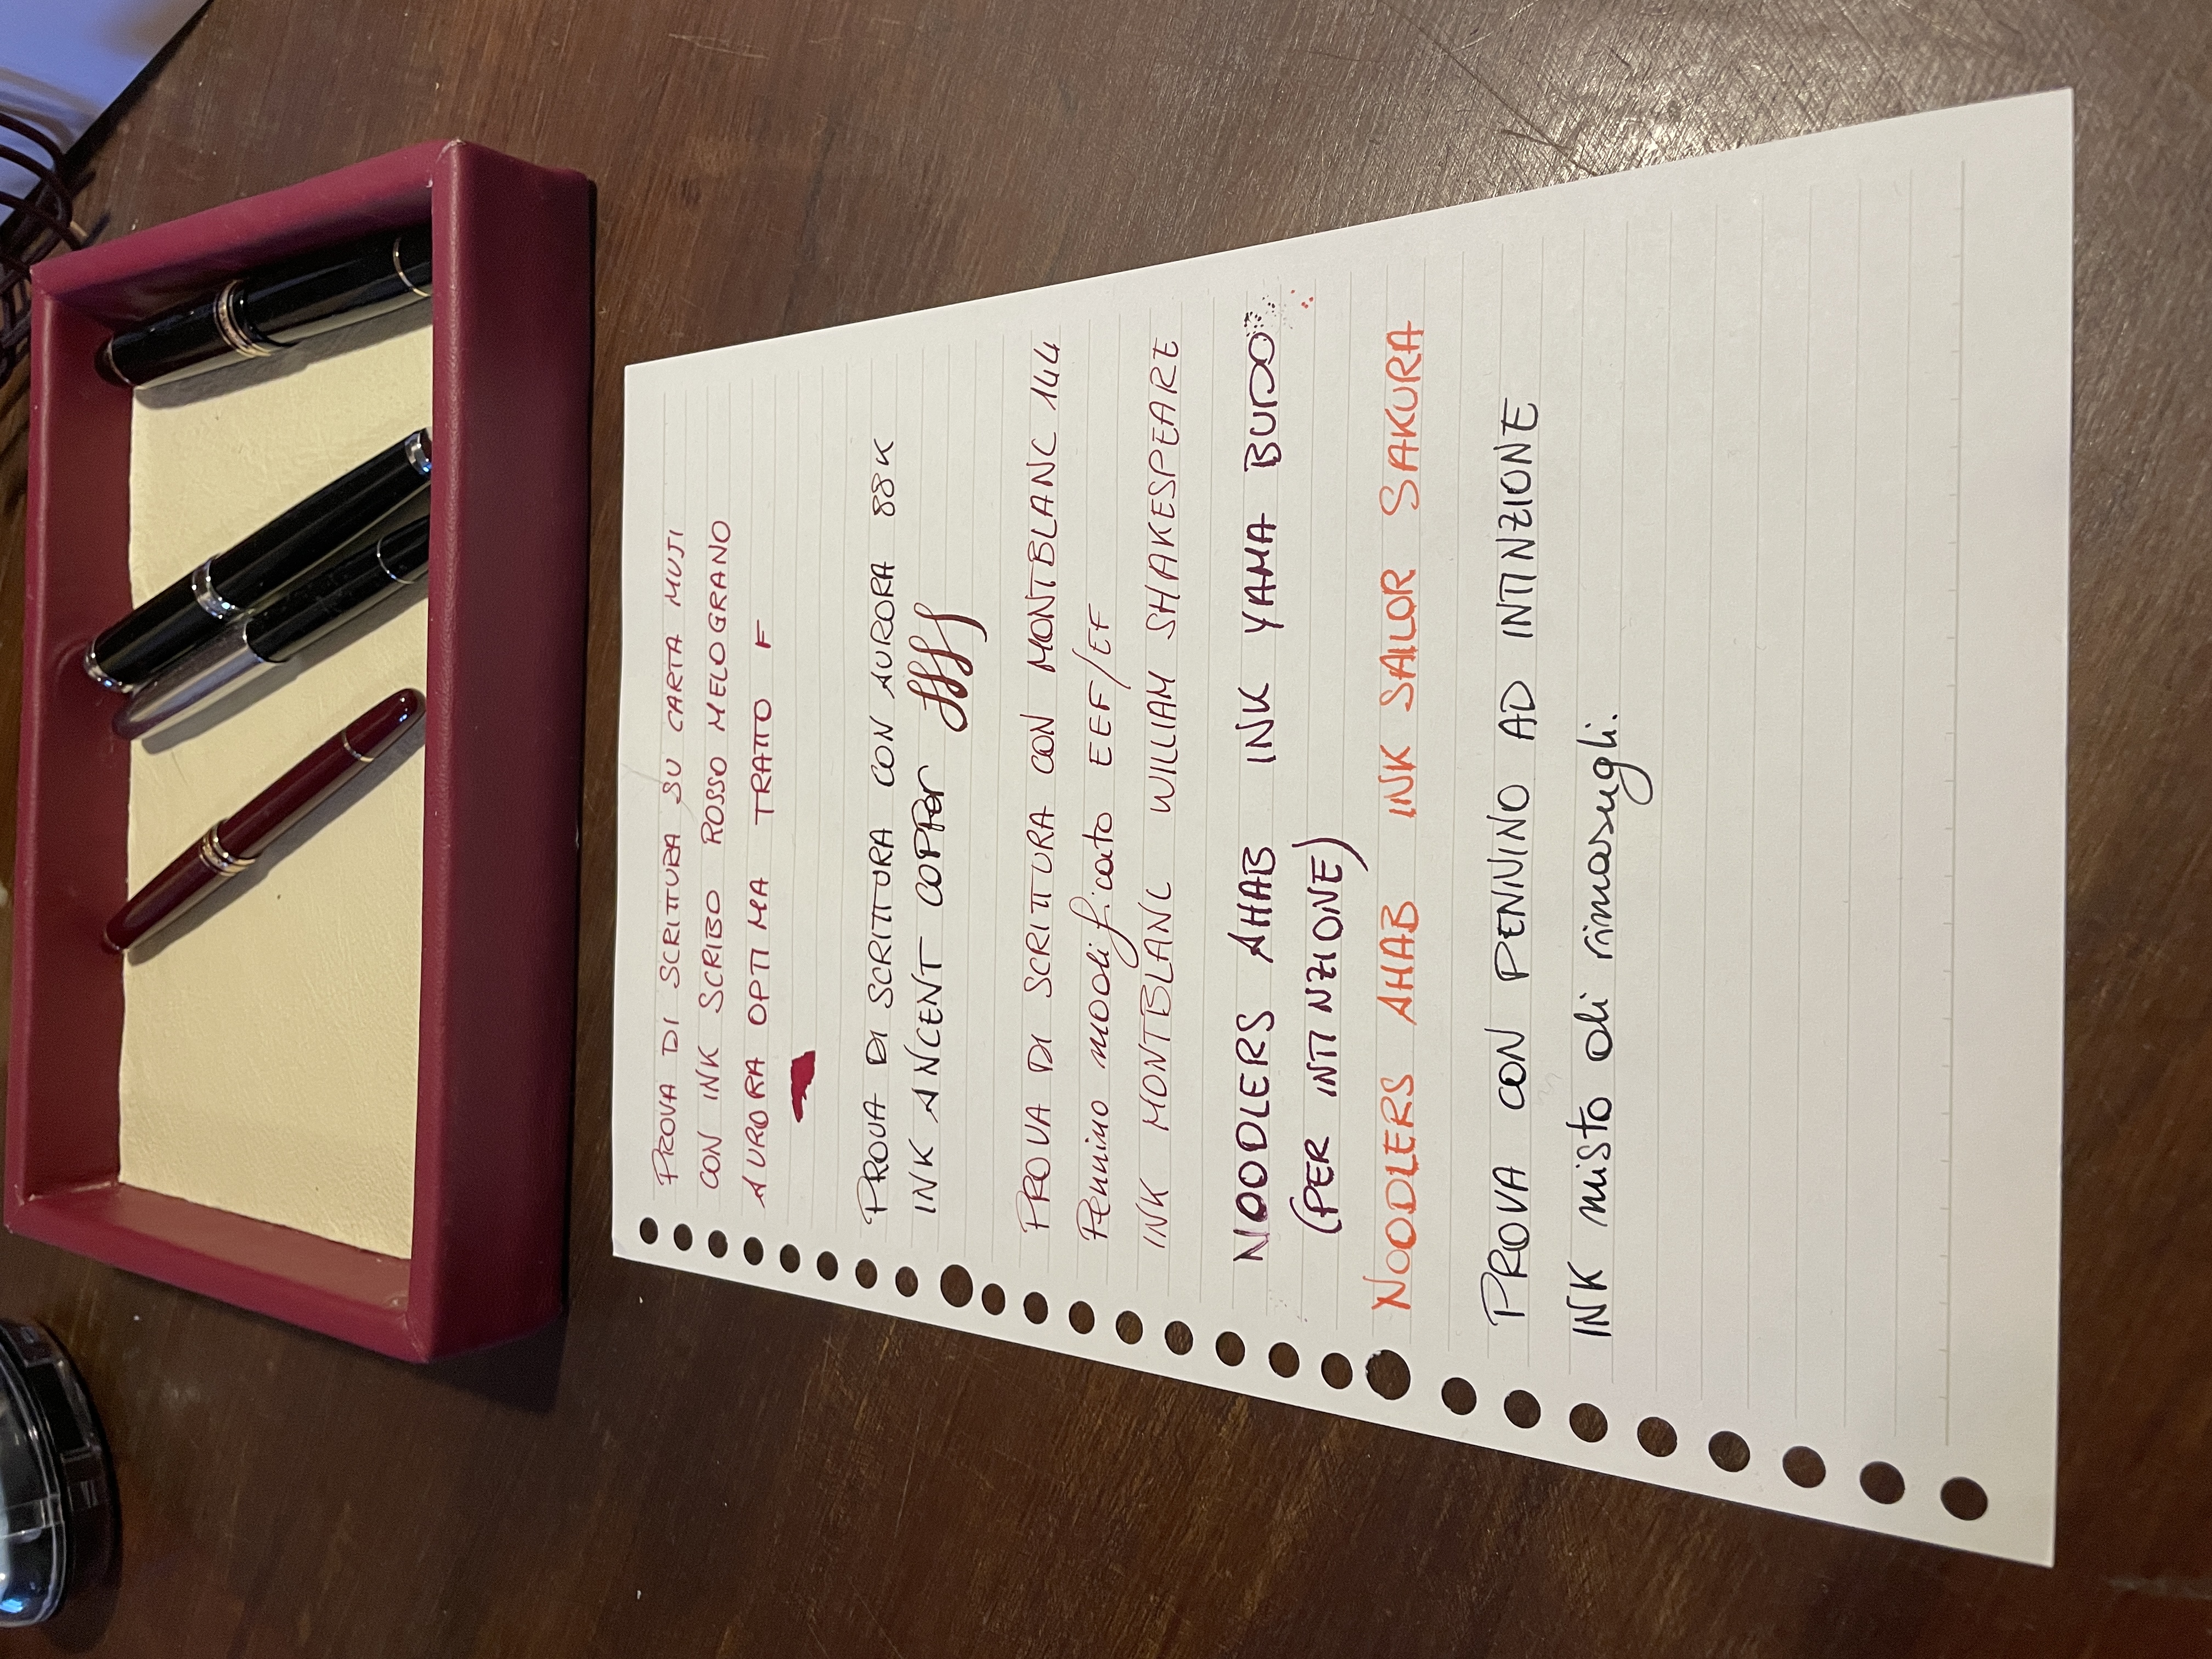 PROVA DI SCRITTURA SU CARTA MUJI
CON INK SCRIBO ROSSO MELOGRANO
AURORA OPTIMA TRATTO F
PROVA DI SCRITTURA CON AURORA 88K
INK ANCENT COPPer ffff
PROVA DI SCRITTURA CON MONTBLANC 144
Pennino modificato EEF/EF
INK MONTBLANC WILLIAM SHAKESPEARE
NOODLERS AHAB INK YAMA BUDO
(PER INTINZIONE)
NOODLERS AHAB INK SALOR SAKURA
PROVA CON PENNINO AD INTINZIONE
INK misto di rimasugli.